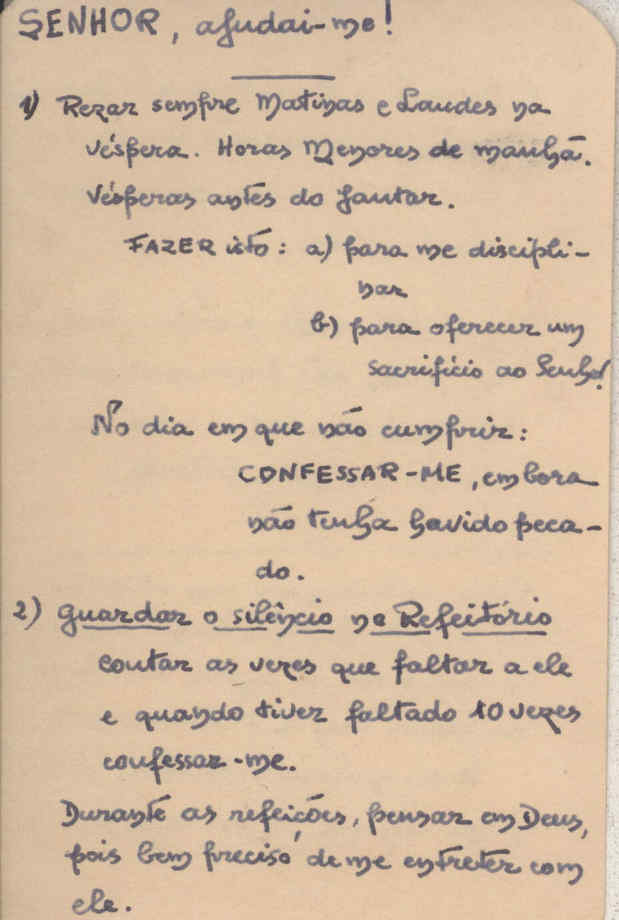 SENHOR, ajudai-me!
1) Rezar sempre Matinas e Laudes na
véspera. Horas Menores de manhã.
Vésperas antes do jantar.
FAZER isto: a) para me discipli-
nar
b) para oferecer um
sacrifício ao Senhor!
No dia em que não cumprir:
CONFESSAR-ME, embora
não tenha havido peca-
do.
2) guardar o silêncio no Refeitório
contar as vezes que faltar a ele
e quando tiver faltado 10 vezes
confessar-me.
Durante as refeições, pensar em Deus,
pois bem preciso de me entreter com
ele.